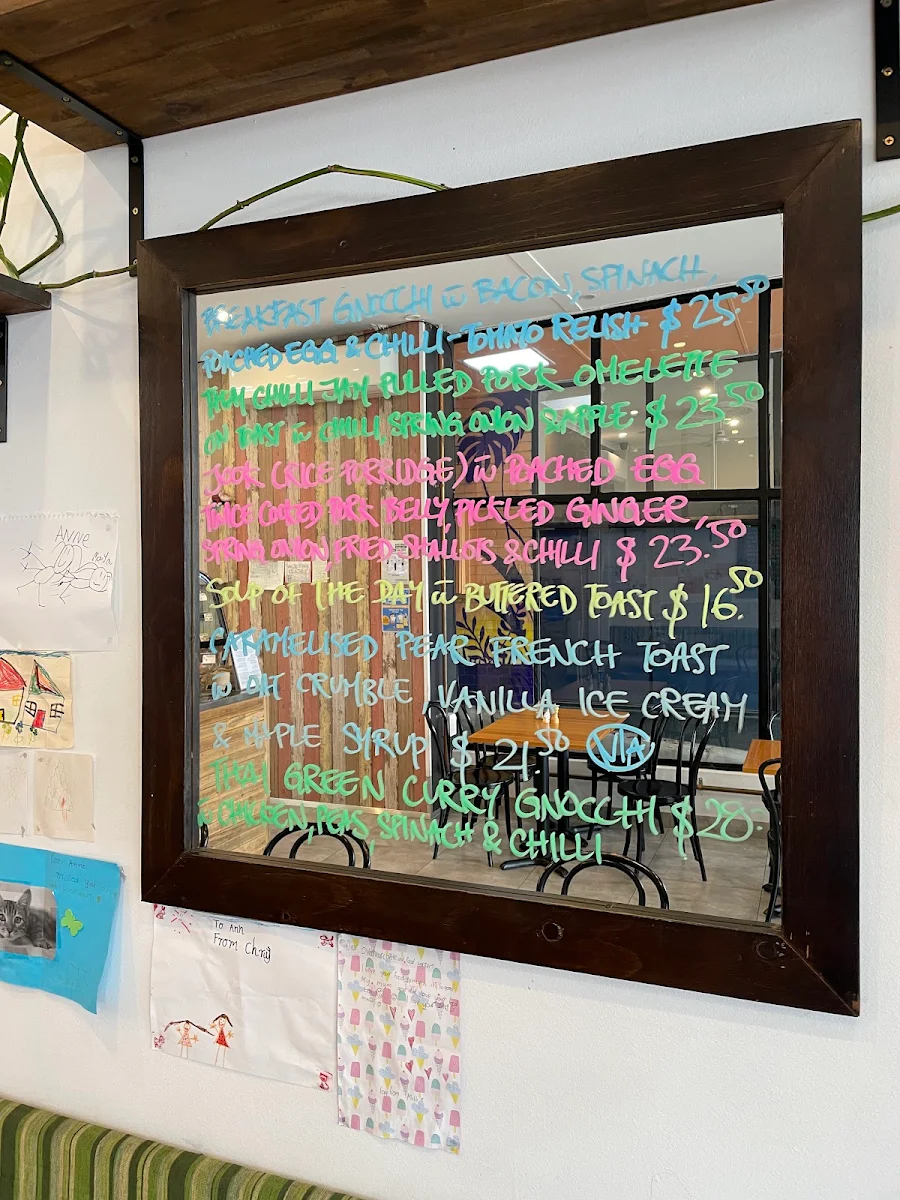 BREAKFAST GNOCCHI w̄ BACON, SPINACH,
POACHED EGG & CHILLI-TOMATO RELISH $25.50
THAI CHILLI JAM PULLED PORK OMELETTE
ON TOAST w̄ CHILLI, SPRING ONION $23.50
JOOK (RICE PORRIDGE) w̄ POACHED EGG
TWICE COOKED PORK BELLY, PICKLED GINGER,
SPRING ONION, FRIED SHALLOTS & CHILLI $23.50
SOUP OF THE DAY w̄ BUTTERED TOAST $16.50
CARAMELISED PEAR FRENCH TOAST
w̄ OAT CRUMBLE VANILLA ICE CREAM
& MAPLE SYRUP $21.50 V/A
THAI GREEN CURRY GNOCCHI $28.
w̄ CHICKEN, PEAS, SPINACH & CHILLI
ANNE
To Anh
From Chraj